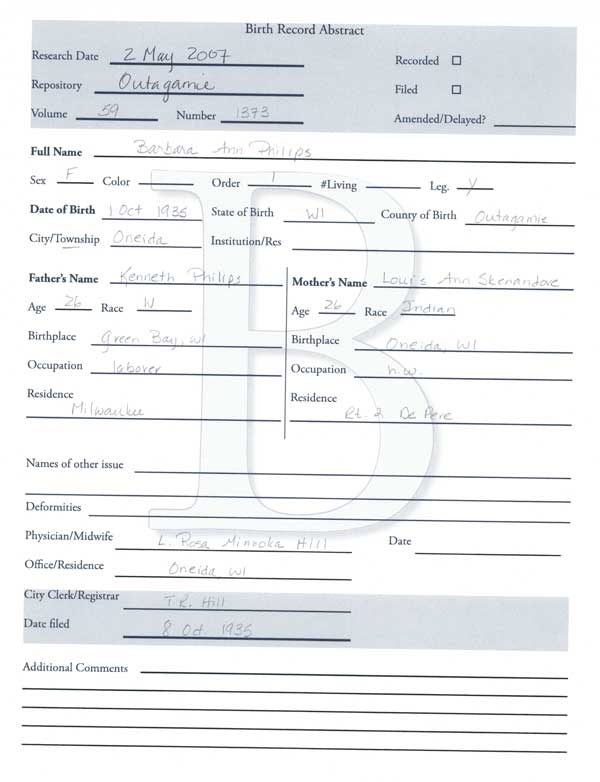 Birth Record Abstract
Research Date 2 May 2007 Recorded
Repository Outagamie Filed
Volume 59 Number 1373 Amended/Delayed?
Full Name Barbara Ann Philips
Sex F Color Order 1 #Living Leg. y
Date of Birth 1 Oct 1935 State of Birth WI County of Birth Outagamie
City/Township Oneida Institution/Res
Father's Name Kenneth Philips Mother's Name Louis Ann Skenandore
Age 26 Race W Age 26 Race Indian
Birthplace Green Bay, WI Birthplace Oneida, WI
Occupation laborer Occupation h.w.
Residence Residence
Milwaukee Rt. 2 De Pere
Names of other issue
Deformities
Physician/Midwife L. Rosa Minnoka Hill Date
Office/Residence Oneida WI
City Clerk/Registrar T.R. Hill
Date filed 8 Oct. 1935
Additional Comments
B